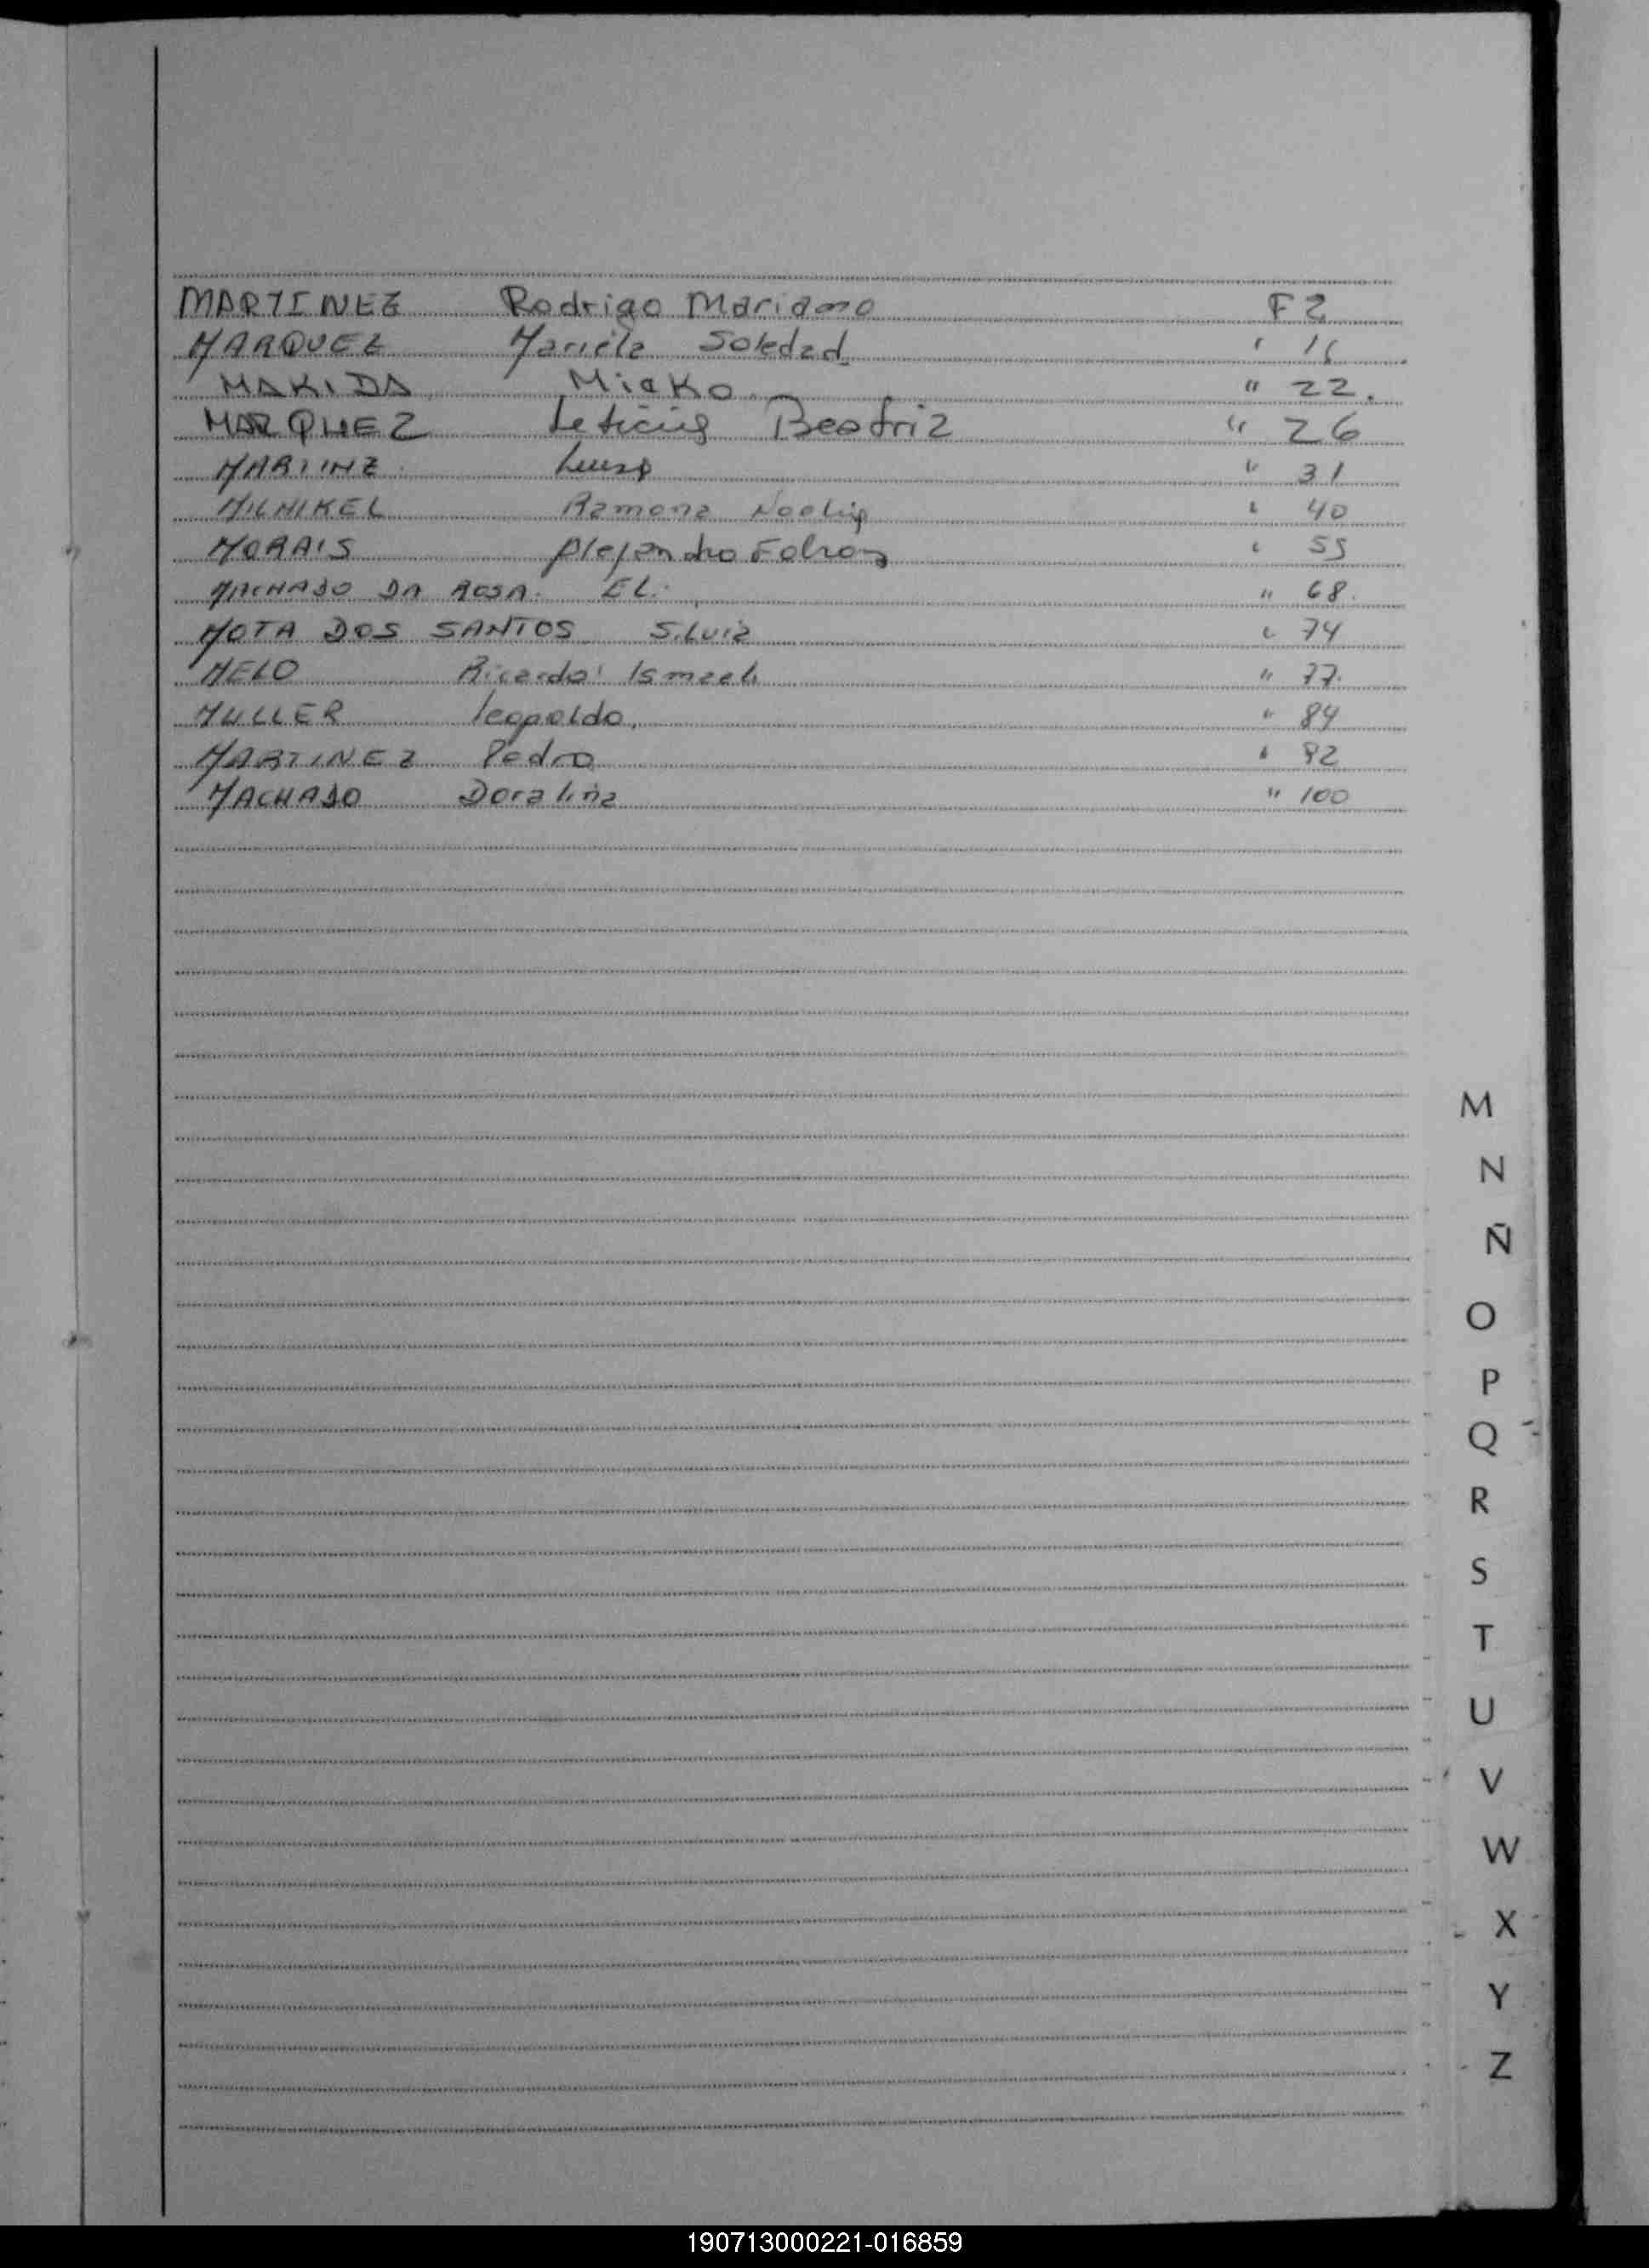 MARTINEZ Rodrigo Mariano F 2
MARQUEZ Mariela Soledad " 16
MAKIDA Mieko " 22.
MARQUEZ Leticia Beatriz " 26
MARTINZ Luisa " 31
MILNIKEL Ramona Noelia " 40
MORAIS Alejandro Fabian " 55
MACHADO DA ROSA. " 68.
MOTA DOS SANTOS Silvia " 74
MELO Ricardo Ismael " 77.
MULLER Leopoldo, " 84
MARTINEZ Pedro " 92
MACHADO Doralina " 100
M
N
Ñ
O
P
Q
R
S
T
U
V
W
X
Y
Z
190713000221-016859